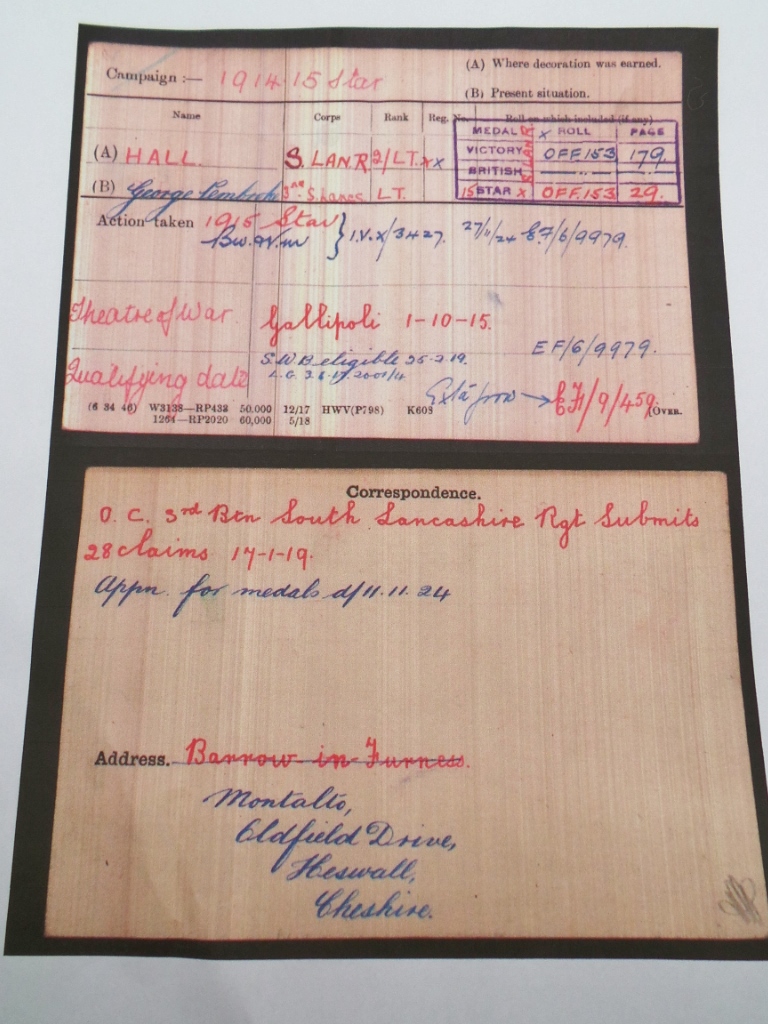 Campaign :— 1914-15 Star
(A) Where decoration was earned.
(B) Present situation.
Name Corps Rank Reg. No. Roll on which included (if any)
MEDAL ROLL PAGE
(A) HALL. S. LAN. R 2/LT. xx
VICTORY x OFF.153 179.
BRITISH S. LAN. R. —..— —..—
(B) George Pembroke 3rd S. Lancs LT.
15 STAR x OFF.153 29.
Action taken 1915 Star
Bw. & Vm } I.V. x/3427. 27/11/24 E.F/6/9979.
Theatre of War Gallipoli 1-10-15.
S.W.B eligible 26-2-19. EF/6/9979.
Qualifying date
Exta from → EF/9/459.
(6 34 46) W3138—RP438 50,000 12/17 HWV(P798) K608 (OVER.
1264—RP2020 60,000 5/18
Correspondence.
O. C. 3rd Btn South Lancashire Rgt Submits
28 claims 17-1-19.
Appn. for medals d/11.11.24
Address. Barrow-in-Furness.
Montalto,
Oldfield Drive,
Heswall,
Cheshire.